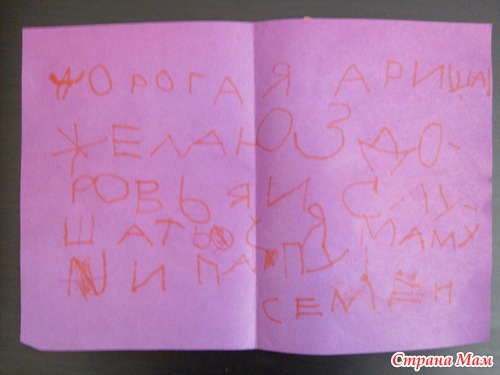 ДОРОГАЯ АРИША!
ЖЕЛАЮ ЗДО-
РОВЬЯ И СЛУ-
ШАТЬСЯ МАМУ
И ПАПУ!
СЕМЁН
Страна Мам